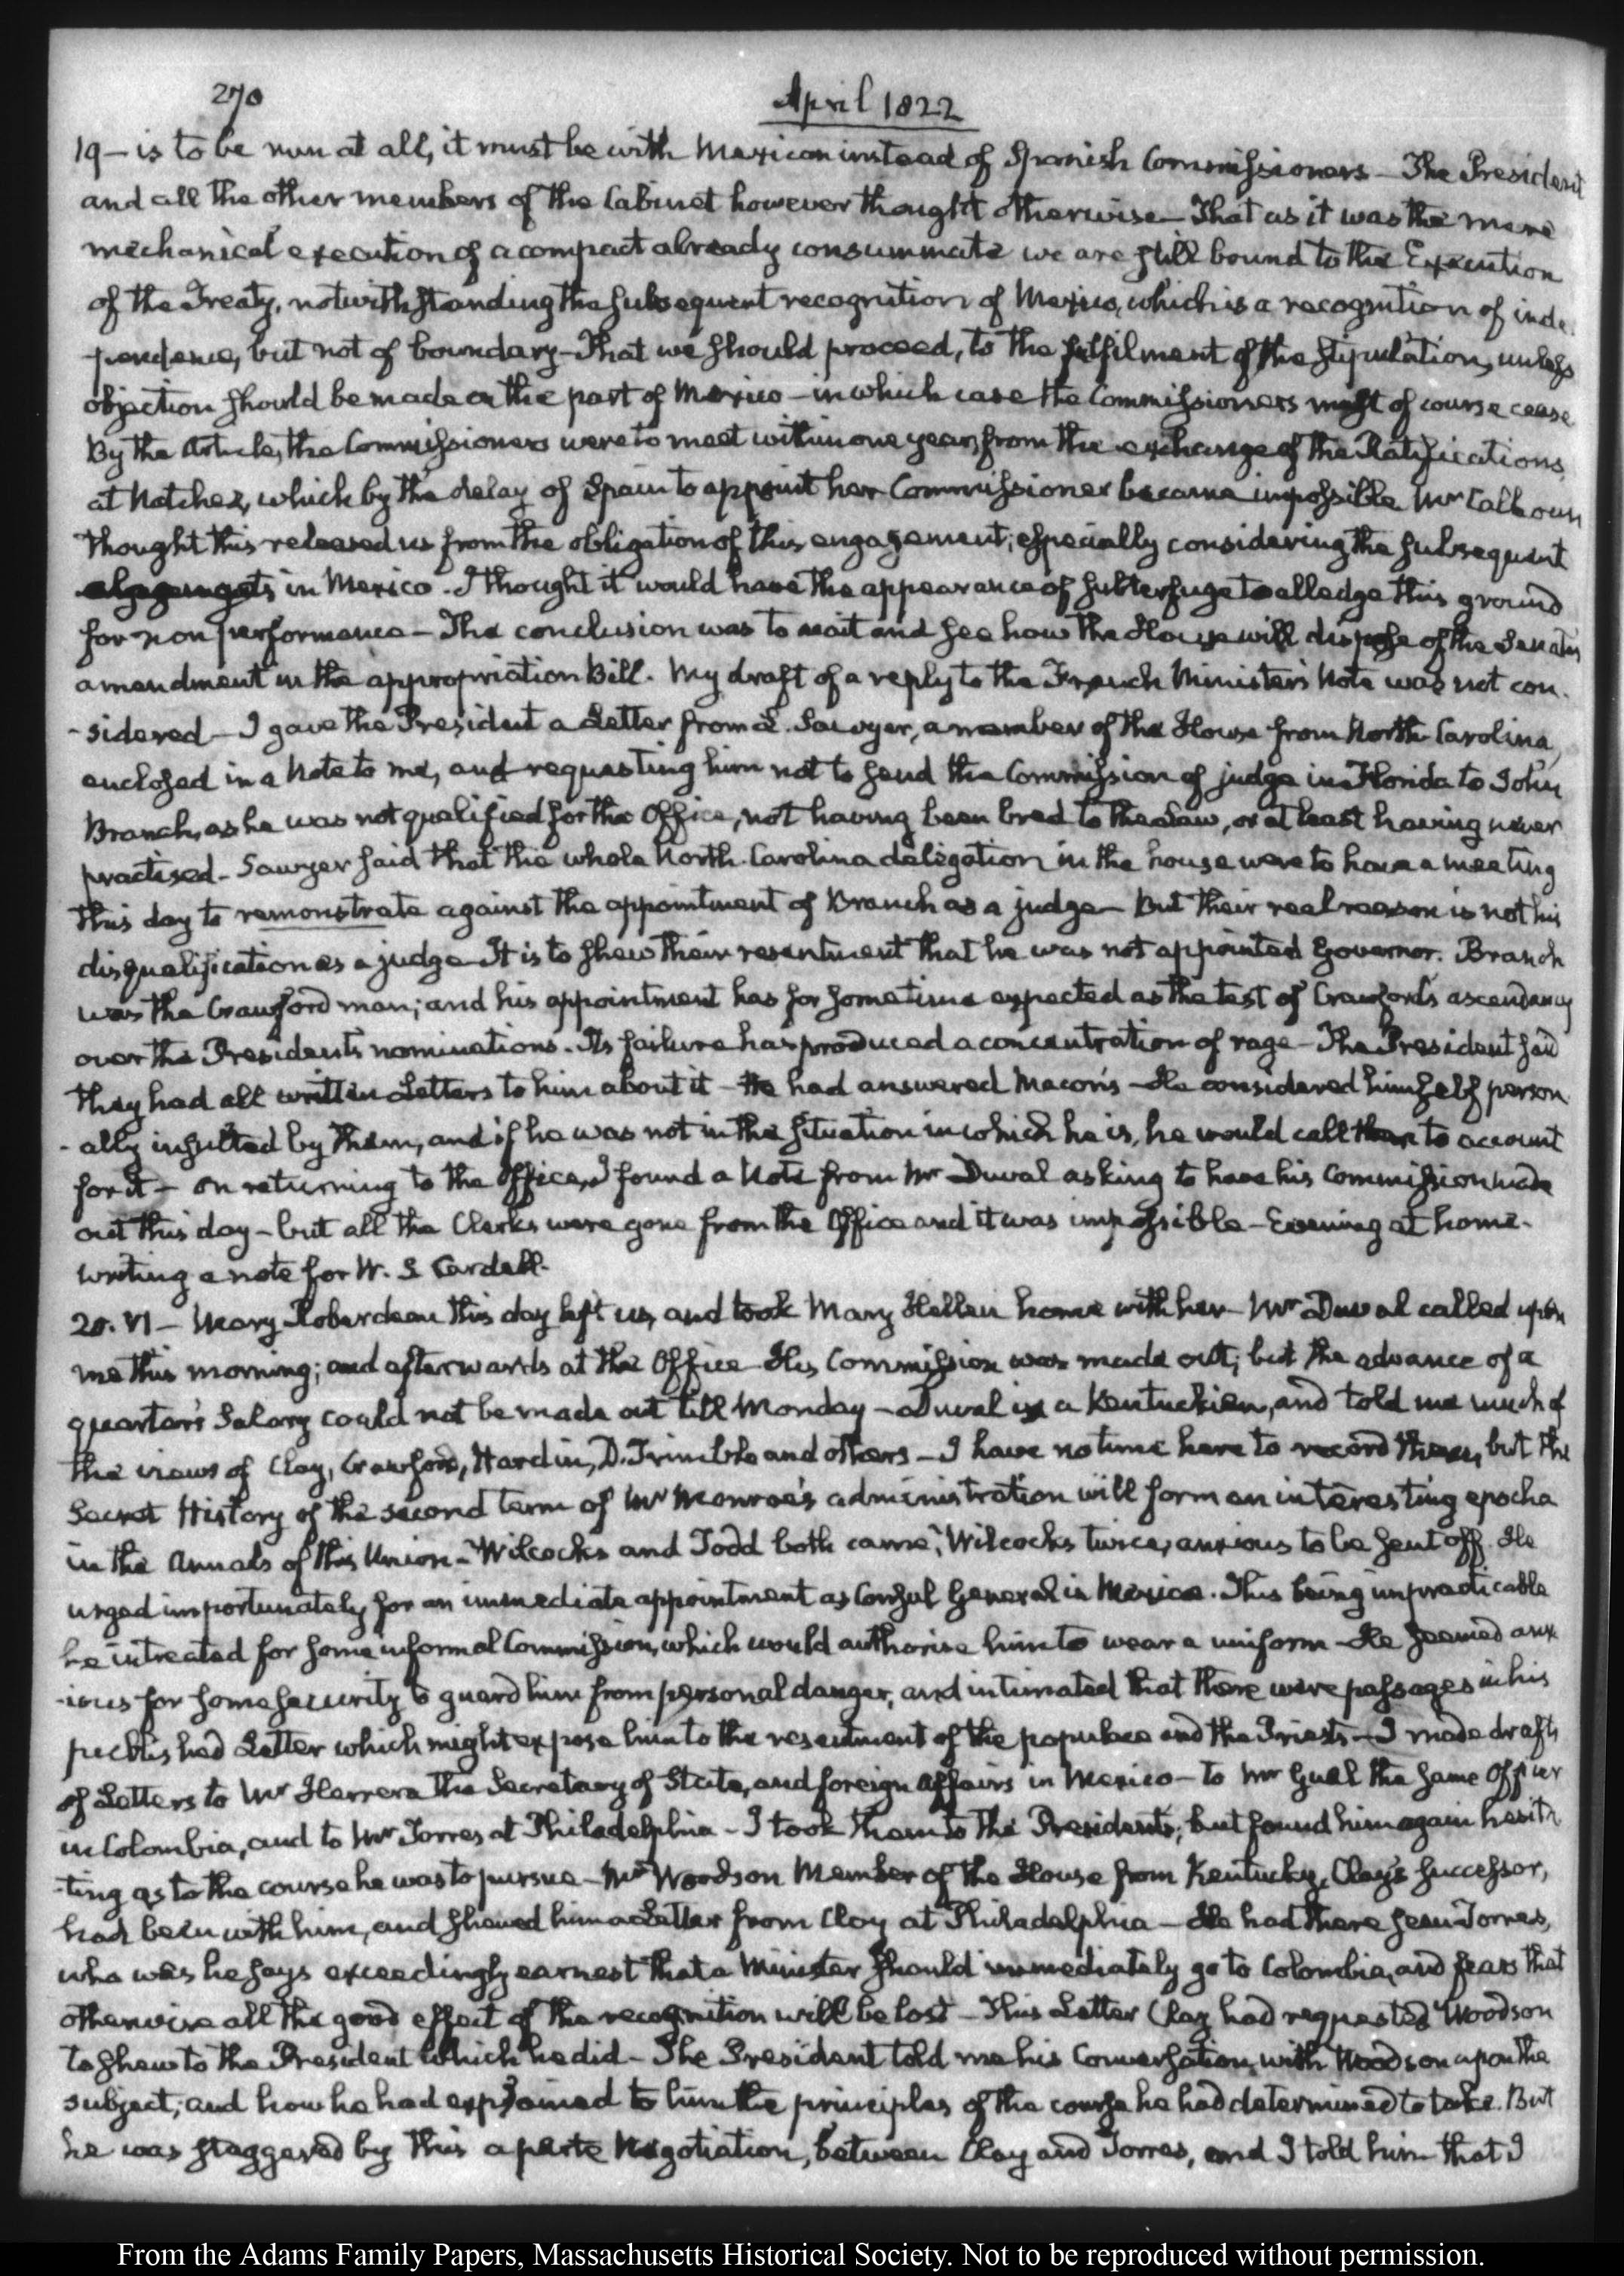 270
April 1822
19 — is to be run at all, it must be with Mexican instead of Spanish Commissioners — The President
and all the other members of the Cabinet however thought otherwise — That as it was the mere
mechanical execution of a compact already consummate we are still bound to the Execution
of the Treaty, notwithstanding the subsequent recognition of Mexico, which is a recognition of inde-
-pendence, but not of boundary — That we should proceed, to the fulfilment of the stipulation, unless
objection should be made on the part of Mexico — in which case the Commissioners must of course cease
By the Article, the Commissioners were to meet within one year, from the exchange of the Ratifications
at Natchez, which by the delay of Spain to appoint her Commissioner became impossible. Mr Calhoun
thought this released us from the obligation of this engagement; especially considering the subsequent
in Mexico. I thought it would have the appearance of subterfuge to alledge this ground
for non performance — The conclusion was to wait and see how the House will dispose of the Senate's
amendment in the appropriation Bill. My draft of a reply to the French Minister's Note was not con-
-sidered — I gave the President a Letter from L. Sawyer, a member of the House from North-Carolina,
enclosed in a Note to me, and requesting him not to send the Commission of judge in Florida to John
Branch, as he was not qualified for the Office, not having been bred to the Law, or at least having never
practised — Sawyer said that the whole North-Carolina delegation in the house were to have a meeting
this day to remonstrate against the appointment of Branch as a judge — But their real reason is not his
disqualification as a judge — It is to shew their resentment that he was not appointed Governor. Branch
was the Crawford man; and his appointment has for sometime expected as the test of Crawford's ascendancy
over the President's nominations. Its failure has produced a concentration of rage — The President said
they had all written Letters to him about it — He had answered Macon's — He considered himself person-
-ally insulted by them, and if he was not in the situation in which he is, he would call them to account
for it — On returning to the Office, I found a Note from Mr Duval asking to have his Commission made
out this day — but all the Clerks were gone from the Office and it was impossible — Evening at home.
writing a note for W. S. Cardell.
20. VI — Mary Roberdeau this day left us, and took Mary Hellen home with her — Mr Duval called upon
me this morning; and afterwards at the Office — His Commission was made out; but the advance of a
quarter's Salary could not be made out till Monday — Duval is a Kentuckian, and told me much of
the views of Clay, Crawford, Hardin, D. Trimble and others — I have no time here to record them, but the
Secret History of the second term of Mr Monroe's administration will form an interesting epocha
in the Annals of this Union — Wilcocks and Todd both came; Wilcocks twice, anxious to be sent off. He
urged importunately for an immediate appointment as Consul General in Mexico. This being impracticable
he intreated for some informal Commission, which would authorise him to wear a uniform — He seemed anx-
-ious for some security to guard him from personal danger, and intimated that there were passages in his
published Letter which might expose him to the resentment of the populace and the Priests — I made drafts
of Letters to Mr Herrera the Secretary of State, and foreign Affairs in Mexico — to Mr Gual the same Officer
in Colombia, and to Mr Torres at Philadelphia — I took them to the President's; but found him again hesita-
-ting as to the course he was to pursue — Mr Woodson Member of the House from Kentucky, Clay's successor,
had been with him, and shewed him a Letter from Clay at Philadelphia — He had there seen Torres,
who was he says exceedingly earnest that a Minister should immediately go to Colombia, and fears that
otherwise all the good effect of the recognition will be lost — This Letter Clay had requested Woodson
to shew to the President which he did — The President told me his Conversation with Woodson upon the
subject; and how he had explained to him the principles of the course he had determined to take. But
he was staggered by this a parte Negotiation, between Clay and Torres, and I told him that I
From the Adams Family Papers, Massachusetts Historical Society. Not to be reproduced without permission.